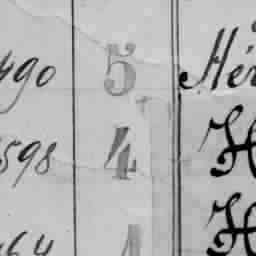 490 5 Hér
598 4 H
64 4 H